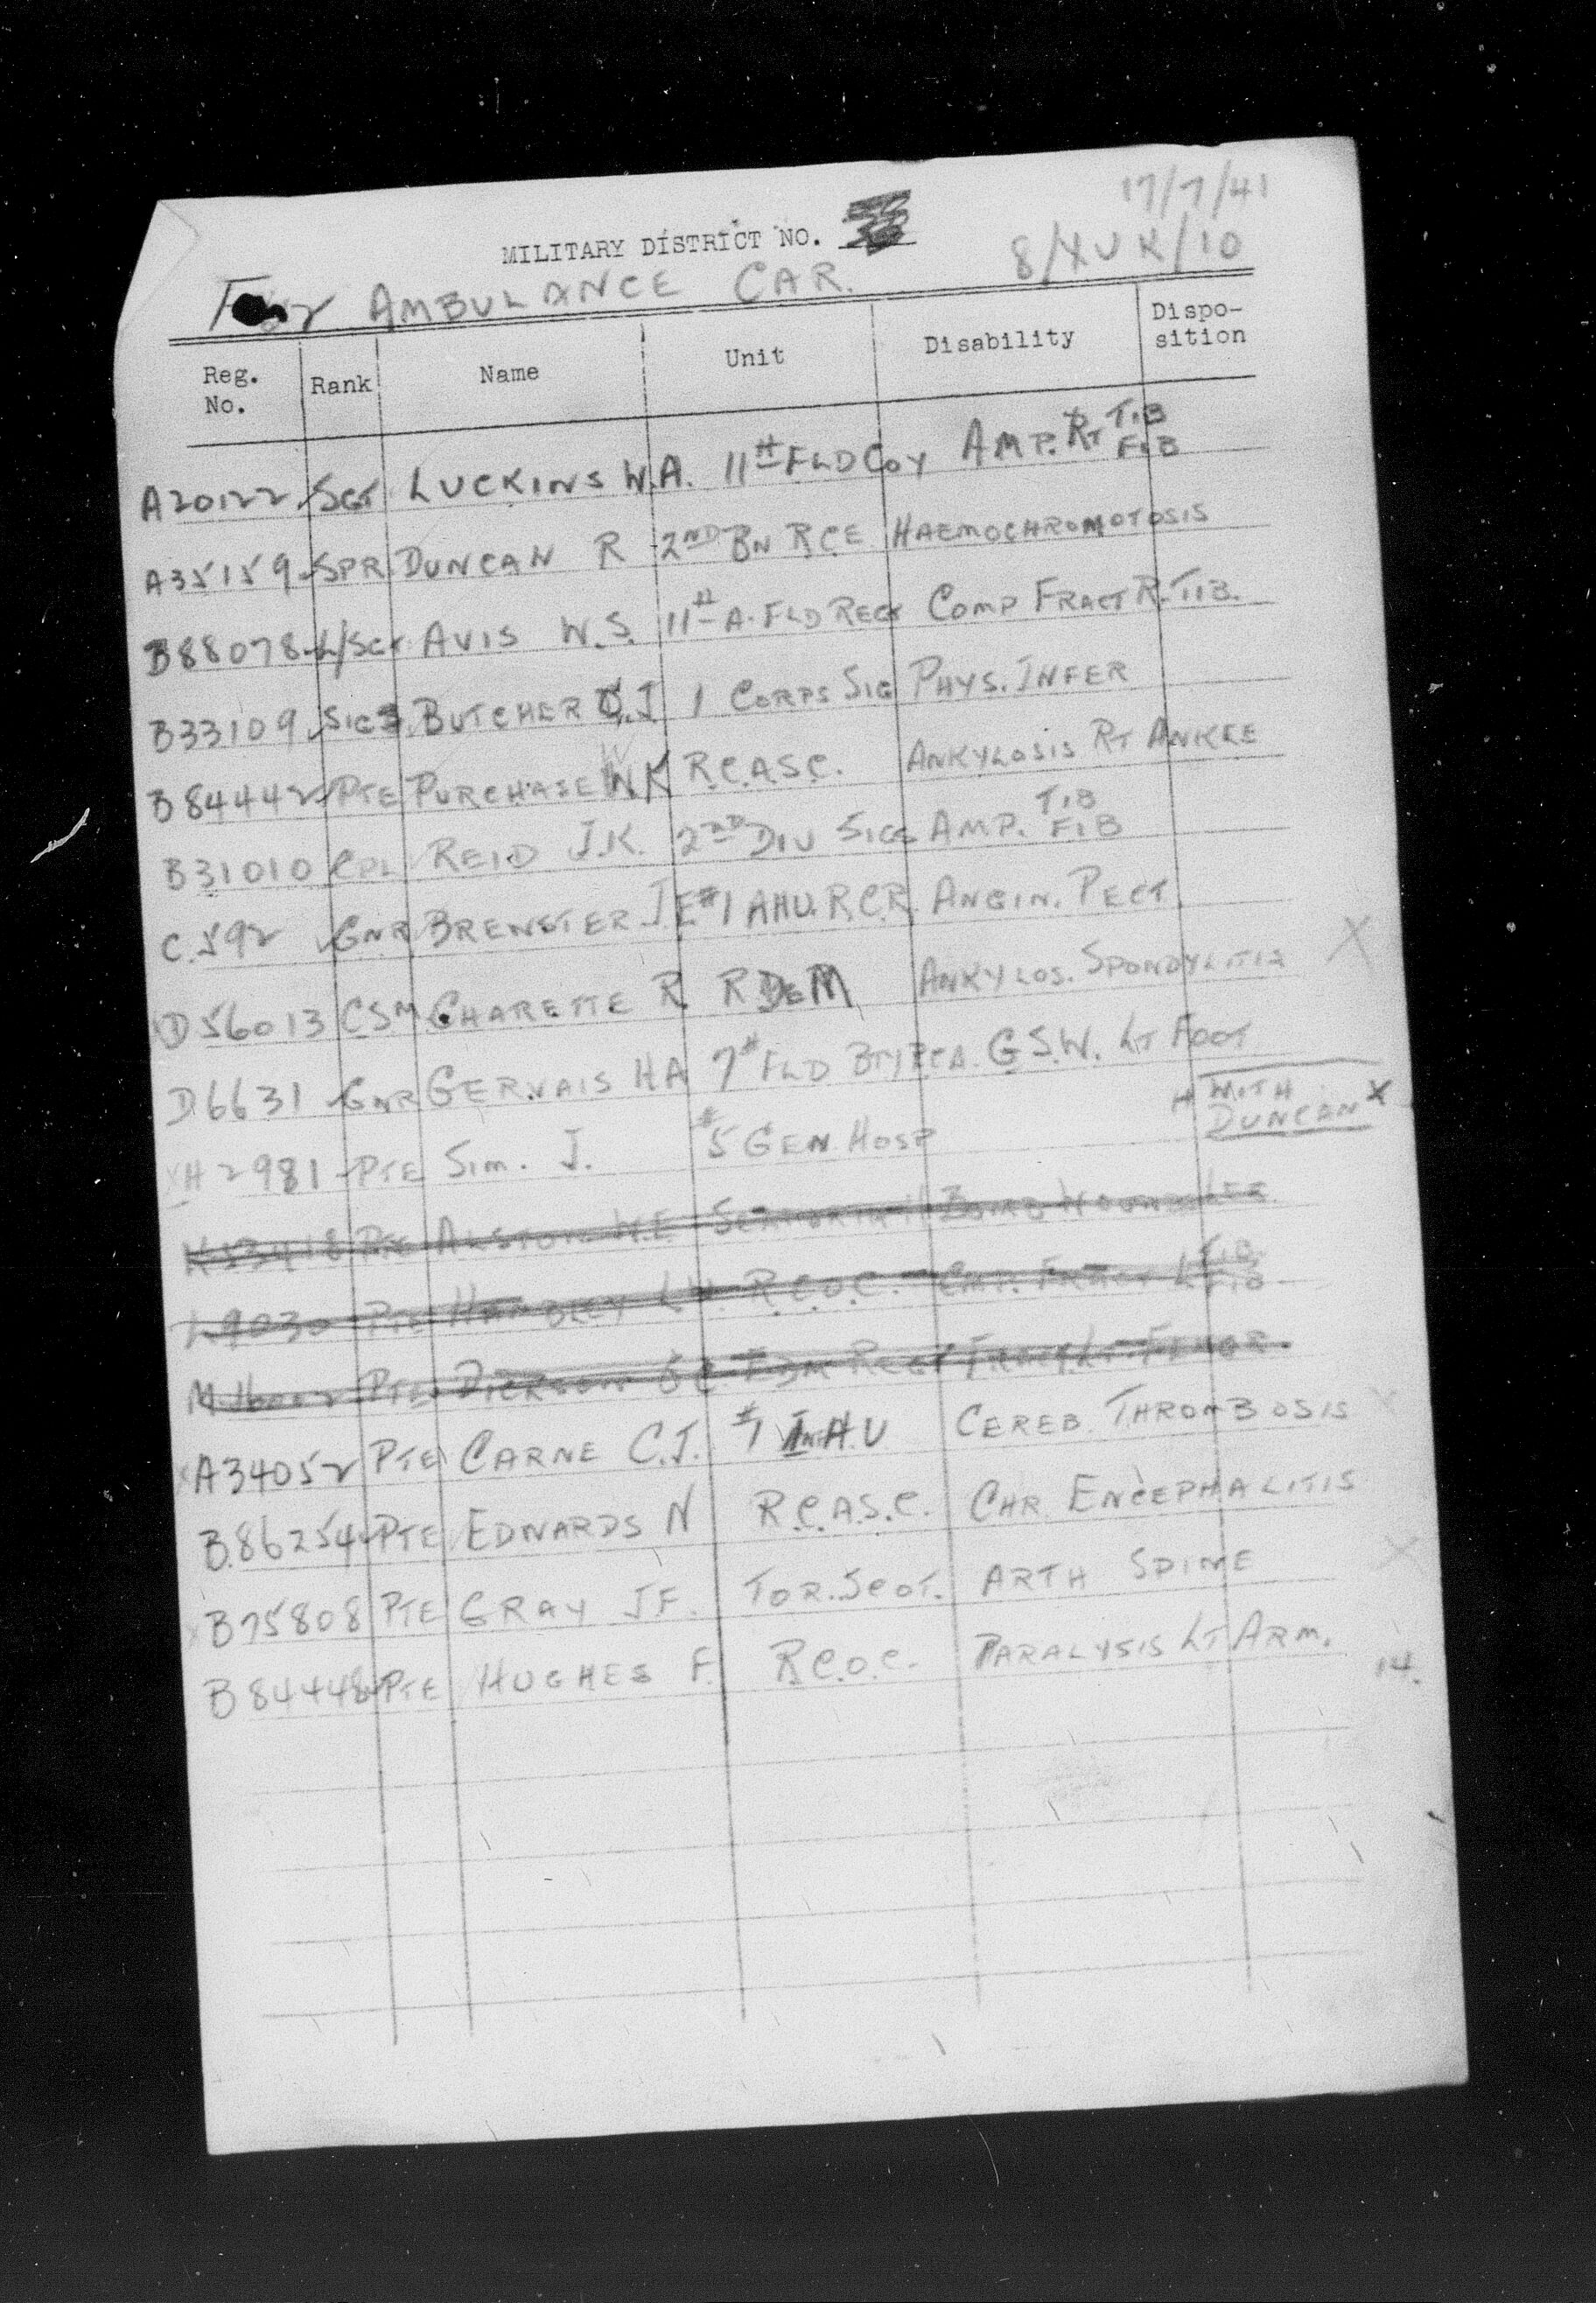 17/7/41
MILITARY DISTRICT NO.
8/XUK/10
For AMBULANCE CAR.
Reg. No. Rank Name Unit Disability Dispo-sition
A20122 SGT LUCKINS W.A. 11TH FLD COY AMP. RT TIB FIB
A35159 SPR DUNCAN R 2ND BN RCE HAEMOCHROMOTOSIS
B88078 L/SGT AVIS W.S. 11TH A. FLD REGT COMP FRACT R. TIB.
B33109 SIG BUTCHER J 1 CORPS SIG PHYS. INFER
B84442 PTE PURCHASE W K R.C.A.S.C. ANKYLOSIS RT ANKLE
B31010 CPL REID J.K. 2ND DIV SIGS AMP. TIB FIB
C.592 GNR BREWSTER J.E #1 AHU. R.C.R. ANGIN. PECT.
D56013 CSM CHARETTE R R DE M ANKYLOS. SPONDYLITIS X
D6631 GNR GERVAIS HA 7TH FLD BTY RCA. G.S.W. LT FOOT
X H2981 PTE SIM. J. #5 GEN. HOSP H WITH DUNCAN X
PTE ALSTON W.E. BOMB WOUND LEG
L9030 PTE R.C.O.C. FRACT L TIB FIB
PTE EDM REGT FRACT LT FEMUR.
A34052 PTE CARNE C.J. #1 HU CEREB. THROMBOSIS X
B.86254 PTE EDWARDS N R.C.A.S.C. CHR ENCEPHALITIS
B75808 PTE GRAY J F. TOR. SCOT. ARTH SPINE X
B84448 PTE HUGHES F. R.C.O.C. PARALYSIS LT ARM.
14.